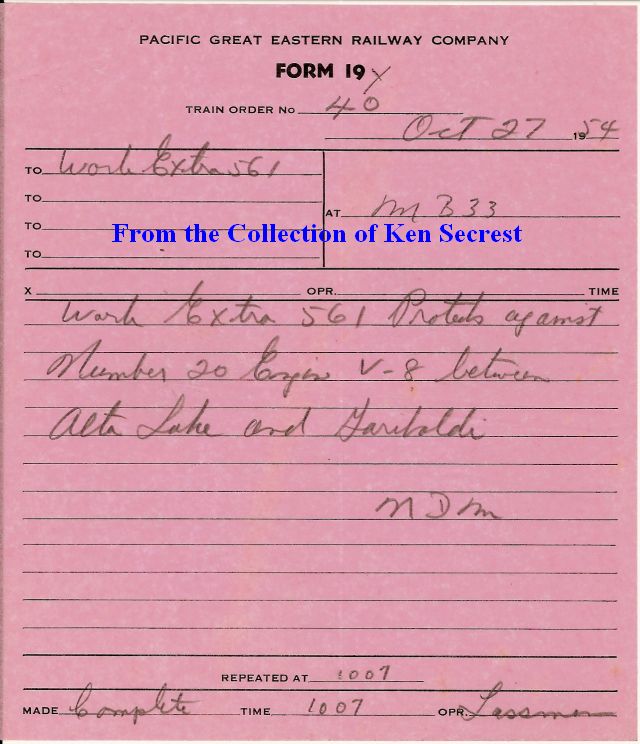 PACIFIC GREAT EASTERN RAILWAY COMPANY
FORM 19 Y
TRAIN ORDER NO 40
Oct 27 1954
TO Work Extra 561
TO
AT M B 33
TO
From the Collection of Ken Secrest
TO
X OPR. TIME
Work Extra 561 Protects against
Number 20 Engine V-8 between
Alta Lake and Garibaldi
REPEATED AT 1007
MADE Complete TIME 1007 OPR. Lassman